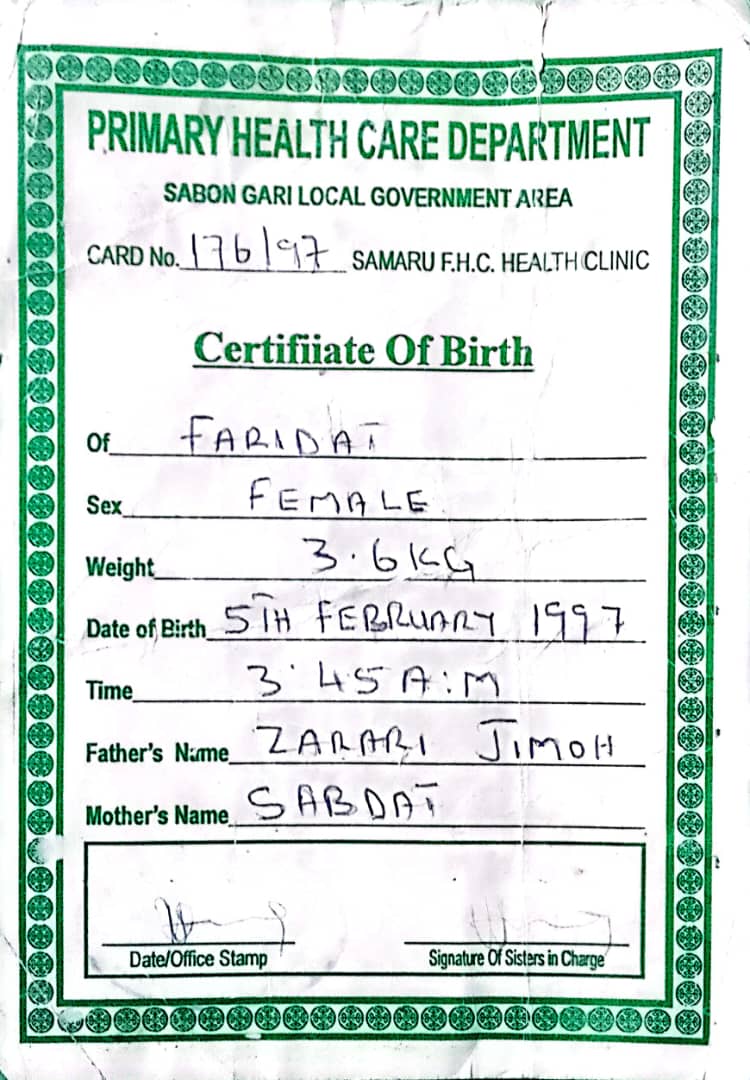 PRIMARY HEALTH CARE DEPARTMENT
SABON GARI LOCAL GOVERNMENT AREA
CARD No. 176/97 SAMARU F.H.C. HEALTH CLINIC
Certifiiate Of Birth
Of FARIDAT
Sex FEMALE
Weight 3.6KG
Date of Birth 5TH FEBRUARY 1997
Time 3.45 A:M
Father's Name ZARARI JIMOH
Mother's Name SABDAT
Date/Office Stamp Signature Of Sisters in Charge